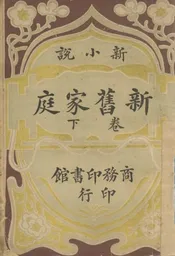 新小説
新舊家庭
卷下
商務印書館
印行